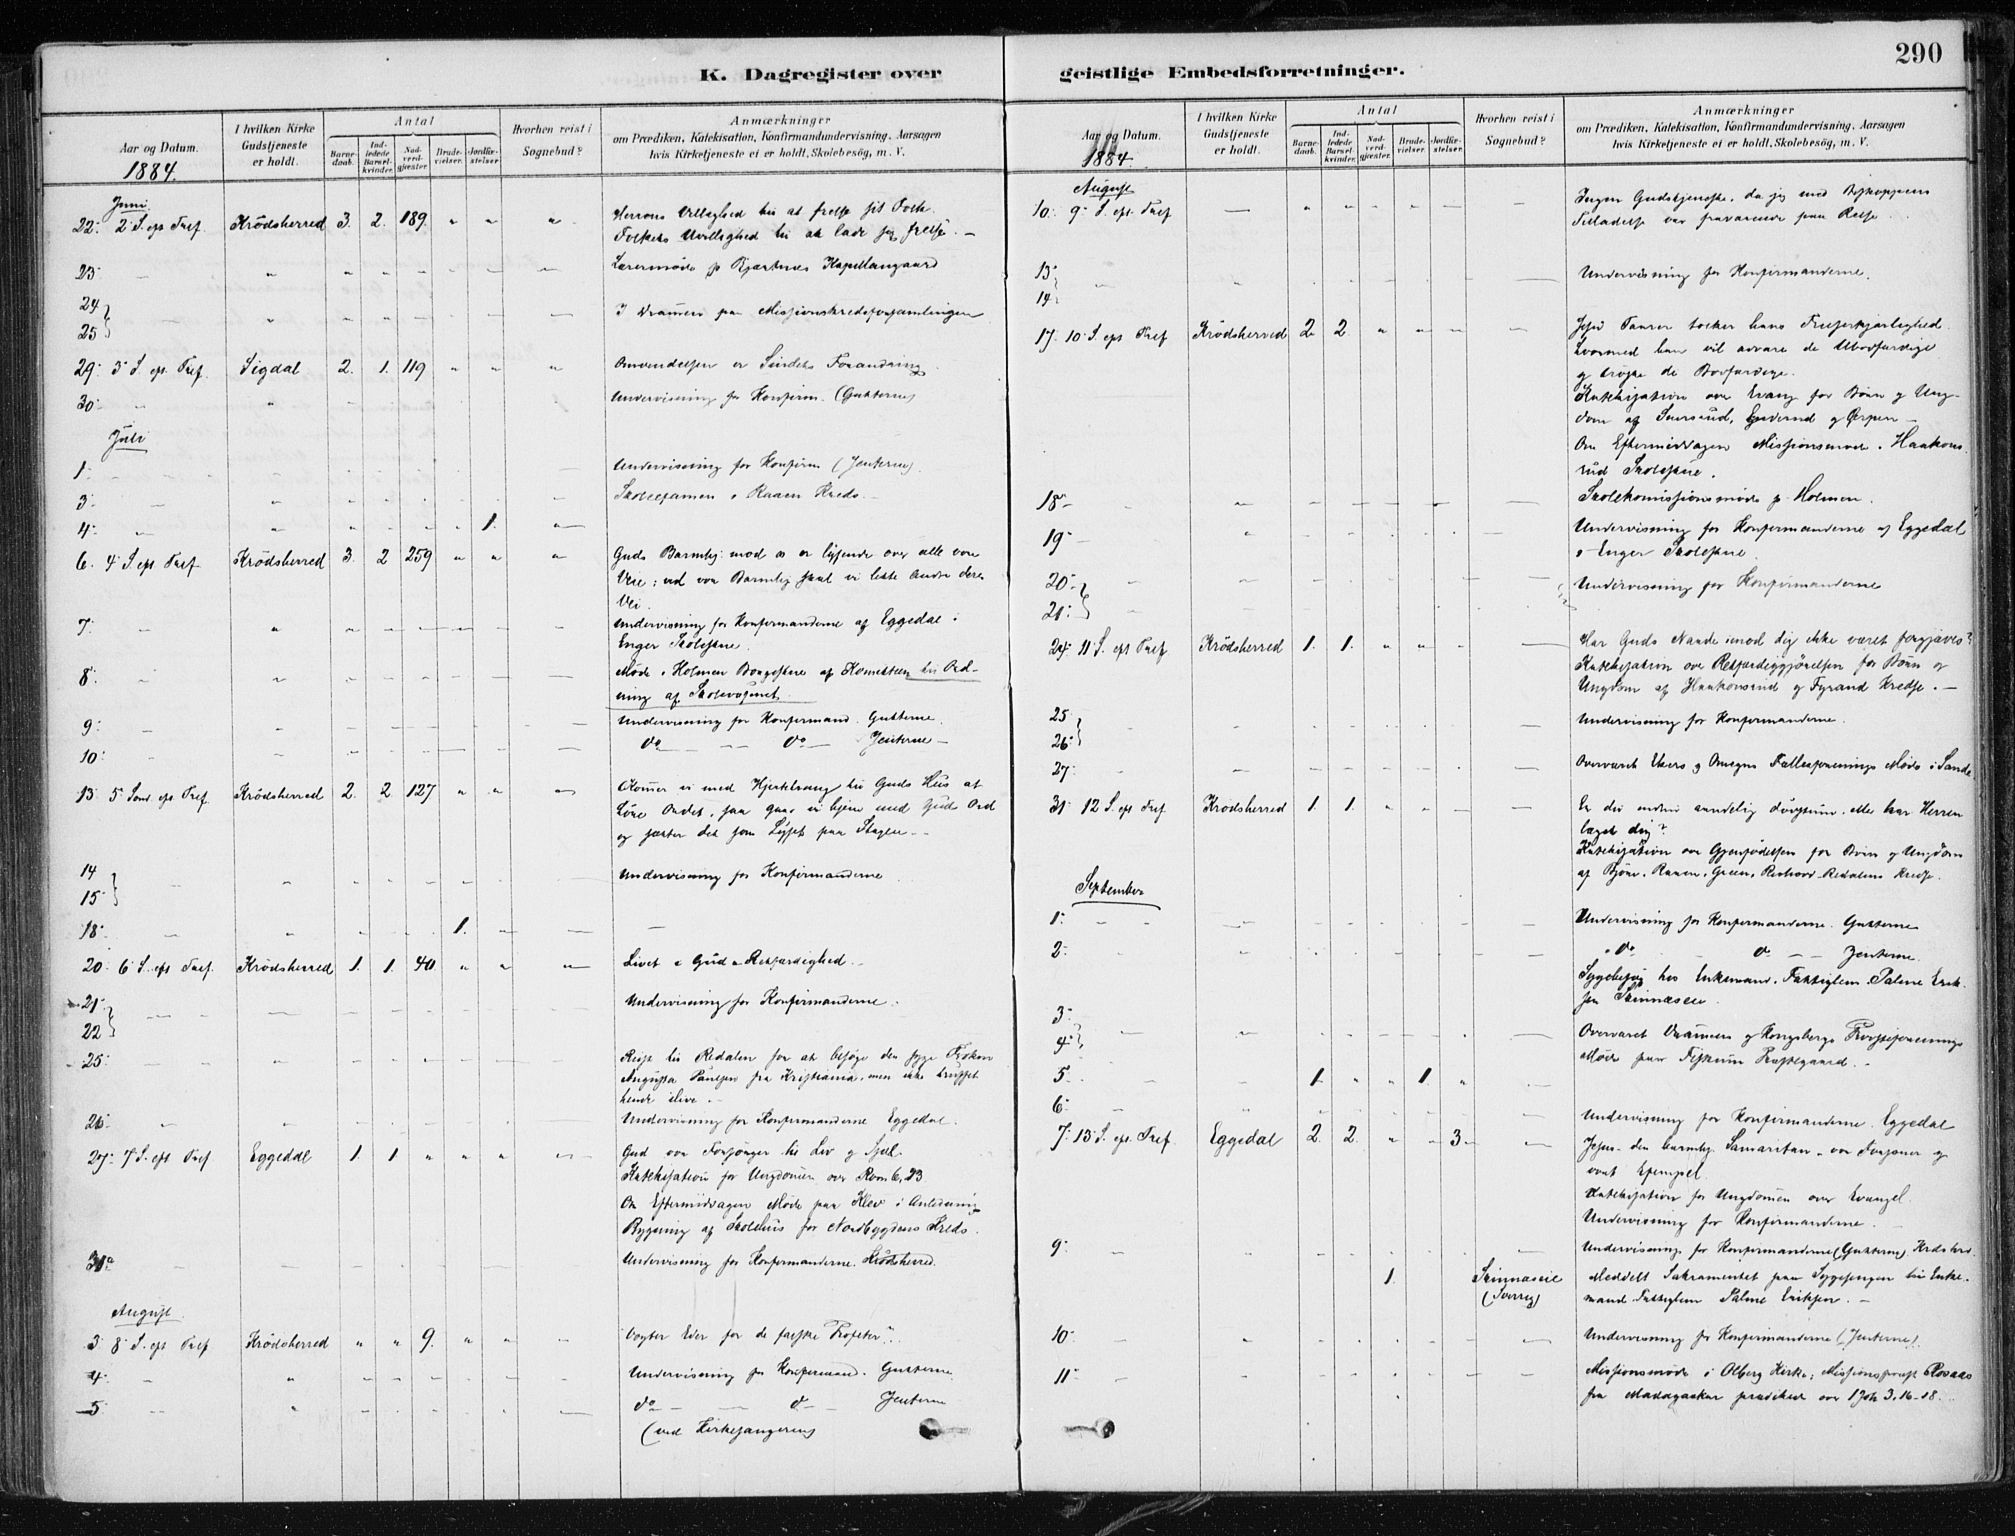 K. Dagregister over
Aar og Datum.
1884.
I hvilken Kirke Gudstjeneste er holdt.
Antal
Barnedaab.
Indledede Barselkvinder.
Nadverdgjester.
Brudevielser.
Jordfæstelser.
Hvorhen reist i Sognebud?
Anmærkninger
om Prædiken, Katekisation, Konfirmandundervisning, Aarsagen
hvis Kirketjeneste ei er holdt, Skolebesøg, m. V.
Juni
22: 2 S. eft Tref. Krödsherred 3. 2. 189. Herrens Villighed til at frelse sit Folk.
Folkets Uvillighed til at lade sig frelse. —
23 Lærermöde p Bjertnæs Kapellangaard
24
25 I Drammen paa Missionskredsforsamlingen
29: 3 S. eft. Tref. Sigdal 2. 1. 119 Omvendelsen er Sindets Forandring.
30: Undervisning for Konfirm. (Gutterne)
Juli
1: Undervisning for Konfirm (Jenterne).
3: Skoleexamen i Raaen Kreds.
4: 1.
6. 4 S. eft Tref. Krödsherred 3. 2 259 Guds Barmhj. mod os er lysende over alle vore
Veie; ved vor Barmhj skal vi lette Andre deres
Vei.
7: Undervisning for Konfirmanderne af Eggedal i
Enger Skolestue.
8: Möde i Holmen Bongestue af Komiteen til Ord-
ning af Skolevæsenet.
9: Undervisning for Konfirmand. Gutterne.
10: do do Jenterne —
13 5 Sönd. eft. Tref. Krödsherred 2. 2 127 Kommer vi med Hjertetrang til Guds Hus at
Löse Ordet, gaar vi hjem med Guds Ord
og sætter det som Lyset paa Stagen —
14
15 Undervisning for Konfirmanderne
18: 1.
20: 6 S. eft Tref. Krödsherred 1. 1. 40. Livet i Gud i Retfærdighed.
21
22 Undervisning for Konfirmanderne.
25: Reist til Redalen for at besöge den syge Fröken
Augusta Paulsen fra Kristiania, men ikke truffet
hende ilive.
26 Undervisning for Konfirmanderne Eggedal.
27: 7 S. eft Tref Eggedal 1. 1. Gud vor Forsörger til Liv og Sjæl.
Katekisation for Ungdommen over Rom 6, 23.
Om Eftermiddagen Möde paa Klev i Anledning
Bygning af Skolehus for Nordbygdens Kreds.
31 Undervisning for Konfirmanderne. Krödsherred.
August.
3: 8 S. eft Tref Krödsherred 9. "Vogter Eder for de falske Profeter".
4 Undervisning for Konfirmand. Gutterne
5 do do Jenterne
(ved Kirkesangeren)
geistlige Embedsforretninger.
290
Aar og Datum.
1884.
I hvilken Kirke Gudstjeneste er holdt.
Antal
Barnedaab.
Indledede Barselkvinder.
Nadverdgjester.
Brudevielser.
Jordfæstelser.
Hvorhen reist i Sognebud?
Anmærkninger
om Prædiken, Katekisation, Konfirmandundervisning, Aarsagen
hvis Kirketjeneste ei er holdt, Skolebesög, m. V.
August
10: 9 S. eft. Tref Ingen Gudstjeneste, da jeg med Biskoppens
Tilladelse var fraværende paa Reise.
13
14 Undervisning for Konfirmanderne.
17. 10 S. eft Tref Krödsherred 2. 2. Jesu Taarer tolker hans Frelserkjærlighed.
hvormed han vil advare de Ubodfærdige
og tröste de Bodfærdige.
Katekisation over Evang for Börn og Ung-
dom af Snersrud, Enderud og Ørpen —
Om Eftermiddagen Missionsmöde i Haakons
rud Skolestue.
18 Skolekomissionsmöde p Holmen.
19: Undervisning for Konfirmanderne af Eggedal
i Enger Skolestue.
20:
21: Undervisning for Konfirmanderne
24: 11 S. eft Tref Krödsherred 1. 1. Har Guds Naade imod dig ikke været forgjæves?
Katekisation over Retfærdiggjörelsen for Börn og
Ungdom af Haakonsrud og Fyrand Kredse. —
25
26: Undervisning for Konfirmanderne.
27: Overværet Ekers og Omegns Fællesforenings Möde i Sande.
31: 12 S. eft Tref Krödsherred 1. 1. Er du endnu aandelig dövstum, eller har Herren
læget dig?
Katekisation over Gjenfödelsen for Börn og Ungdom
af Björe, Raaen, Green, Redalens Kredse.
September
1: Undervisning for Konfirmanderne. Gutterne
2: do do Jenterne.
Sygebesög hos Enkemand, Fattiglem Palme Erik-
sen Skinnæseie.
3:
4: Overværet Drammens og Kongsbergs Præsteforenings
Möde paa Fiskum Præstegaard.
5: 1 1.
6: Undervisning for Konfirmanderne. Eggedal
7: 13 S. eft. Tref. Eggedal 2. 2. 3 Jesus den barmhj. Samaritan, vor Forsoner og
vort Exempel.
Katekisation for Ungdommen over Evangel.
Undervisning for Konfirmanderne.
9: Undervisning for Konfirmanderne (Gutterne) Krdsherr.
1. Skinnæseie Meddelt Sakramentet paa Sygesengen til Enke-
mand Fattiglem Palme Eriksen. —
10: Undervisning for Konfirmanderne (Jenterne).
11: Missionsmöde i Olberg Kirke; Missionsprest Rosaas
fra Madagaskar prædiket over 1 Joh 3, 16-18.